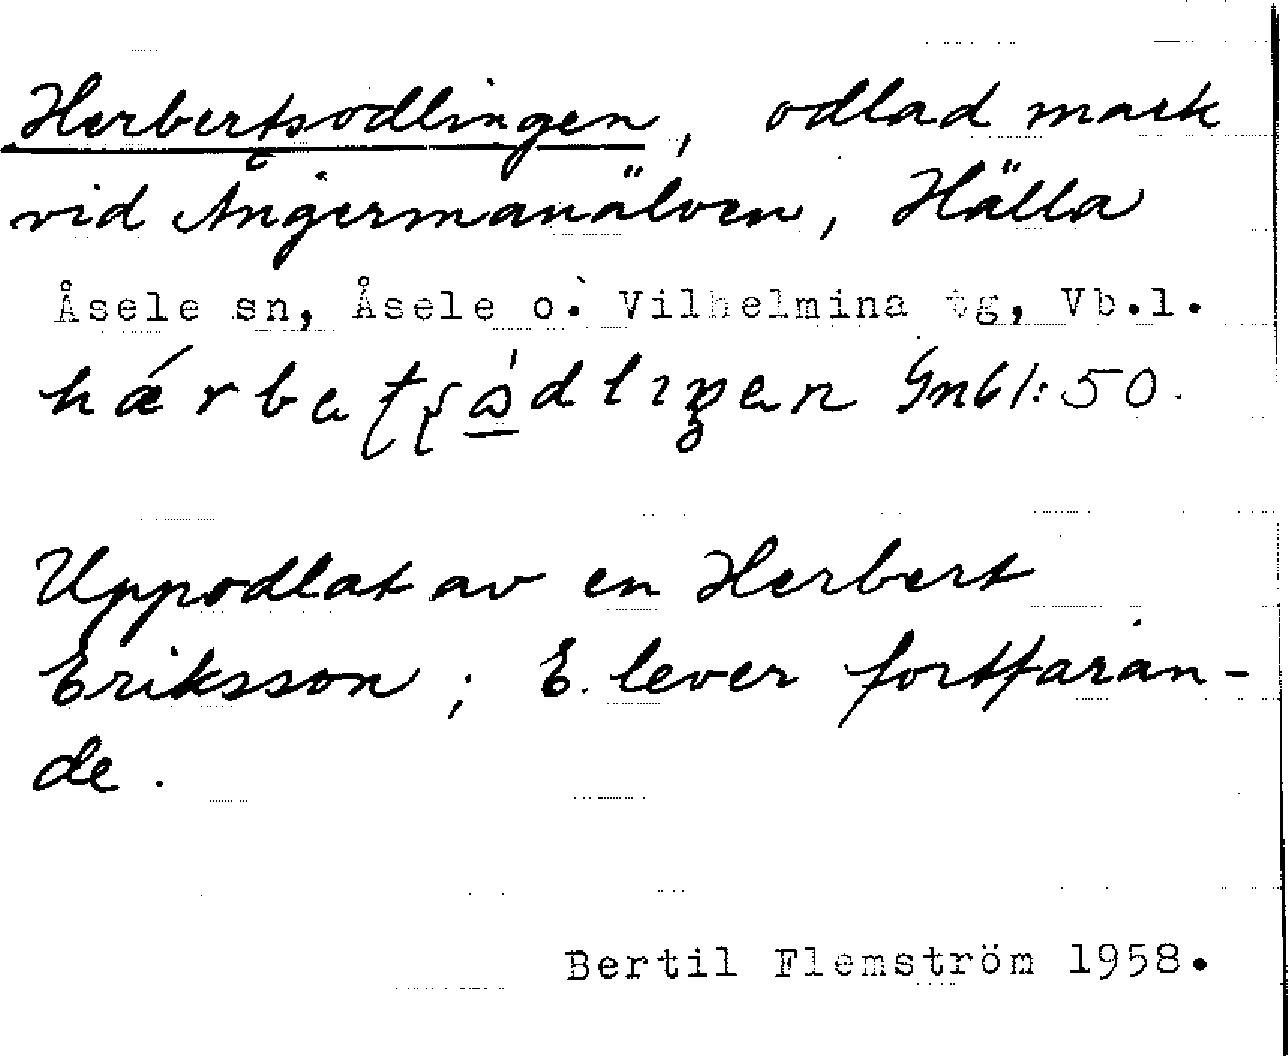 Herbertsodlingen, odlad mark
vid Ångermanälven, Hälla
Åsele sn, Åsele o. Vilhelmina tg, Vb.l.
Uppodlat av en Herbert
Eriksson; E. lever fortfaran-
de.
Bertil Flemström 1958.